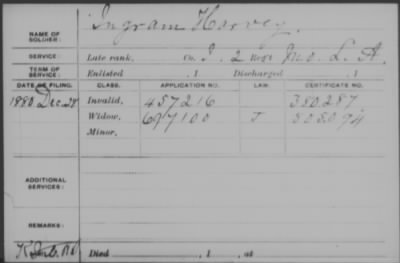 Ingram Harvey.
NAME OF SOLDIER:
SERVICE: Late rank, Co. I, 2 Reg't Mo. L. A.
TERM OF SERVICE: Enlisted , 1 Discharged , 1
DATE OF FILING. CLASS. APPLICATION NO. LAW. CERTIFICATE NO.
1880 Dec. 28 Invalid, 457216 380287
Widow, 697100 J 505094
Minor,
ADDITIONAL SERVICES:
REMARKS:
Died , 1 , at